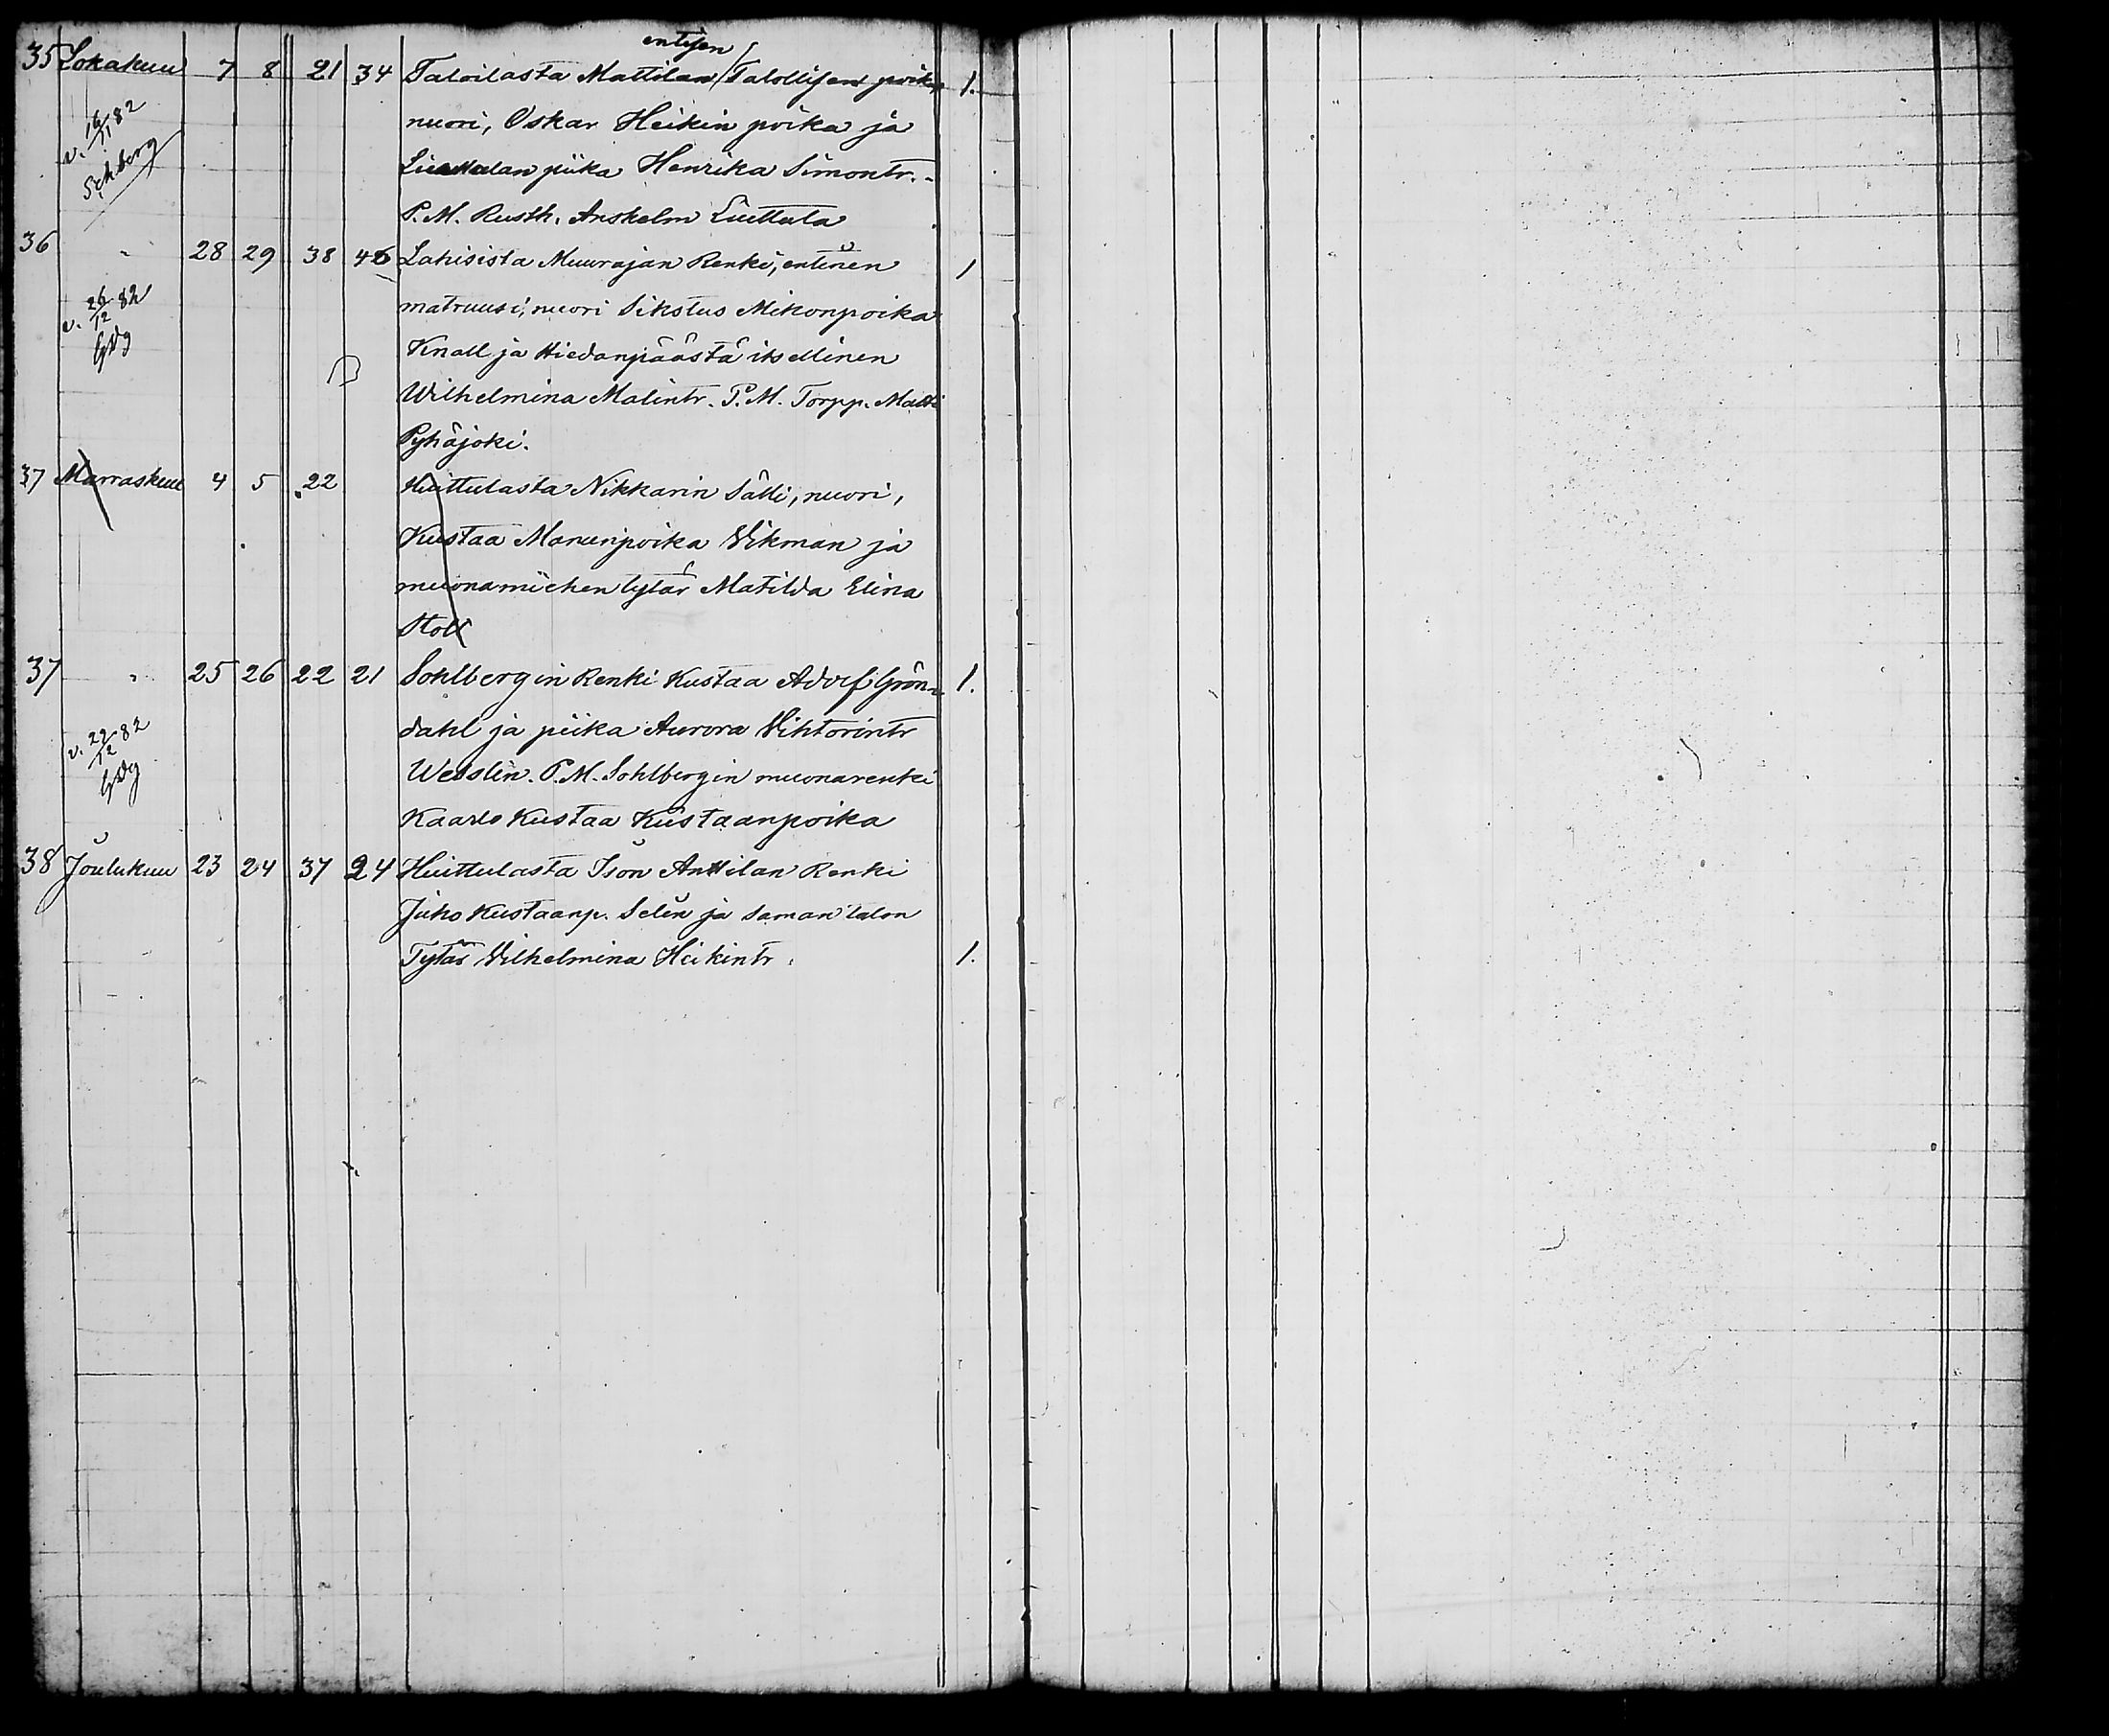 entisen
35 Lokakuu 7 8 21 34 Taloilasta Mattilan Talollisen poika 1.
nuori, Oskar Heikin poika ja
v. 16/11 82 piika Henrika Simontr.
P.M. Rusth. Anshelm Liuttula
36 " 28 29 38 46 Lahisista Muurajan Renki, entinen 1
matruusi, nuori Sikstus Mikonpoika
v. 26/12 82 Knall ja Hiedanpäästä itsellinen
Wilhelmina Malintr. P.M. Torpp. Matti
Pyhäjoki.
37 Marraskuu 4 5 22 Huittulasta Nikkarin Sälli, nuori,
Kustaa Manunpoika Vikman ja
muonamiehen tytär Matilda Elina
Stoll
37 " 25 26 22 21 Sohlbergin Renki Kustaa Adolf Grön- 1.
v. 22/12 82 dahl ja piika Aurora Vihtorintr
Wesslin. P.M. Sohlbergin muonarenki
Kaarlo Kustaa Kustaanpoika
38 Joulukuu 23 24 37 24 Huittulasta Ison Anttilan Renki
Juho Kustaanp. Selin ja saman talon
Tytär Vilhelmina Heikintr. 1.